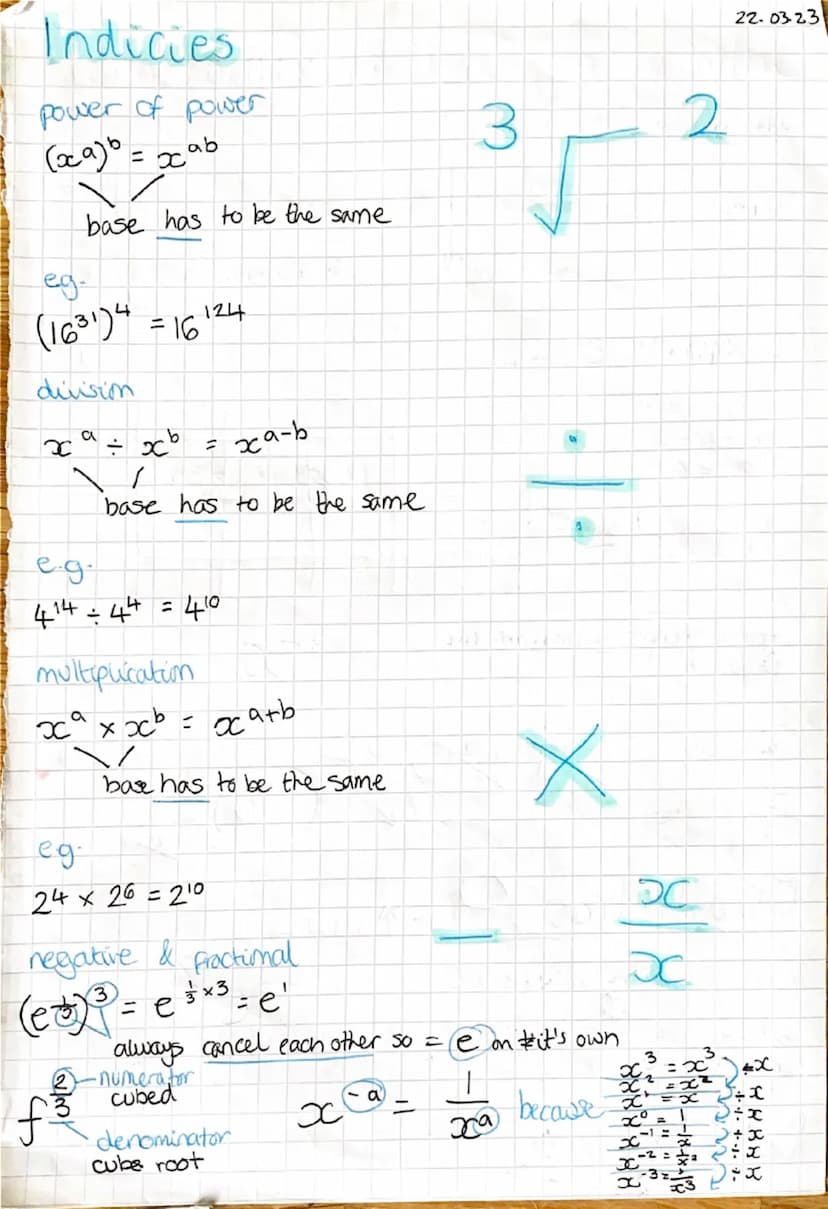 22.03.23
Indicies
power of power
(x^a)^b = x^ab
base has to be the same
3√ 2
eg.
(16^31)^4 = 16^124
division
x^a ÷ x^b = x^a-b
base has to be the same
÷
e.g.
4^14 ÷ 4^4 = 4^10
multiplication
x^a × x^b = x^a+b
base has to be the same
×
eg.
2^4 × 2^6 = 2^10
negative & fractional
− x/x
(e^1/3)^3 = e^1/3×3 = e^1
always cancel each other so = e on it's own
f^2/3
2 – numerator
cubed
denominator
cube root
x^-a = 1/x^a because
x^3 = x^3 ÷x
x^2 = x^2 ÷x
x^1 = x ÷x
x^0 = 1 ÷x
x^-1 = 1/x ÷x
x^-2 = 1/x^2 ÷x
x^-3 = 1/x^3